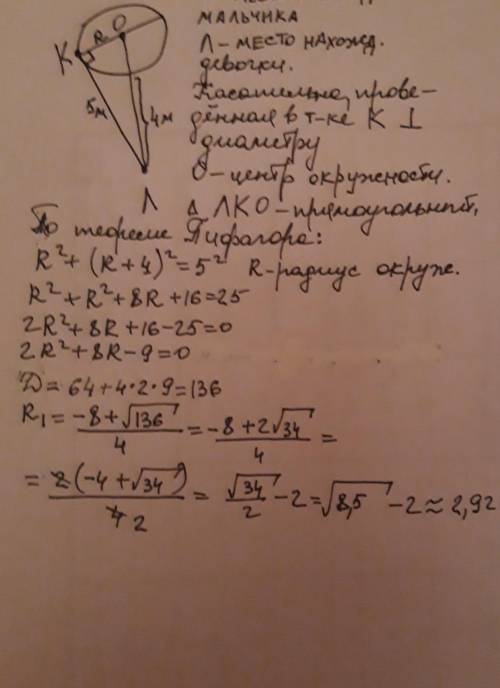 МАЛЬЧИКА
Л - МЕСТО НАХОЖД.
девочки.
Касательная, прове-
дённая в т-ке К ⊥
диаметру
О - центр окружности.
K R O
5м 4м
Л Δ ЛКО - прямоугольный,
По теореме Пифагора:
R² + (R + 4)² = 5² R - радиус окруж.
R² + R² + 8R + 16 = 25
2R² + 8R + 16 - 25 = 0
2R² + 8R - 9 = 0
D = 64 + 4·2·9 = 136
R₁ = (-8 + √136)/4 = (-8 + 2√34)/4 =
= 2(-4 + √34)/4 2 = √34/2 - 2 = √8,5 - 2 ≈ 2,92